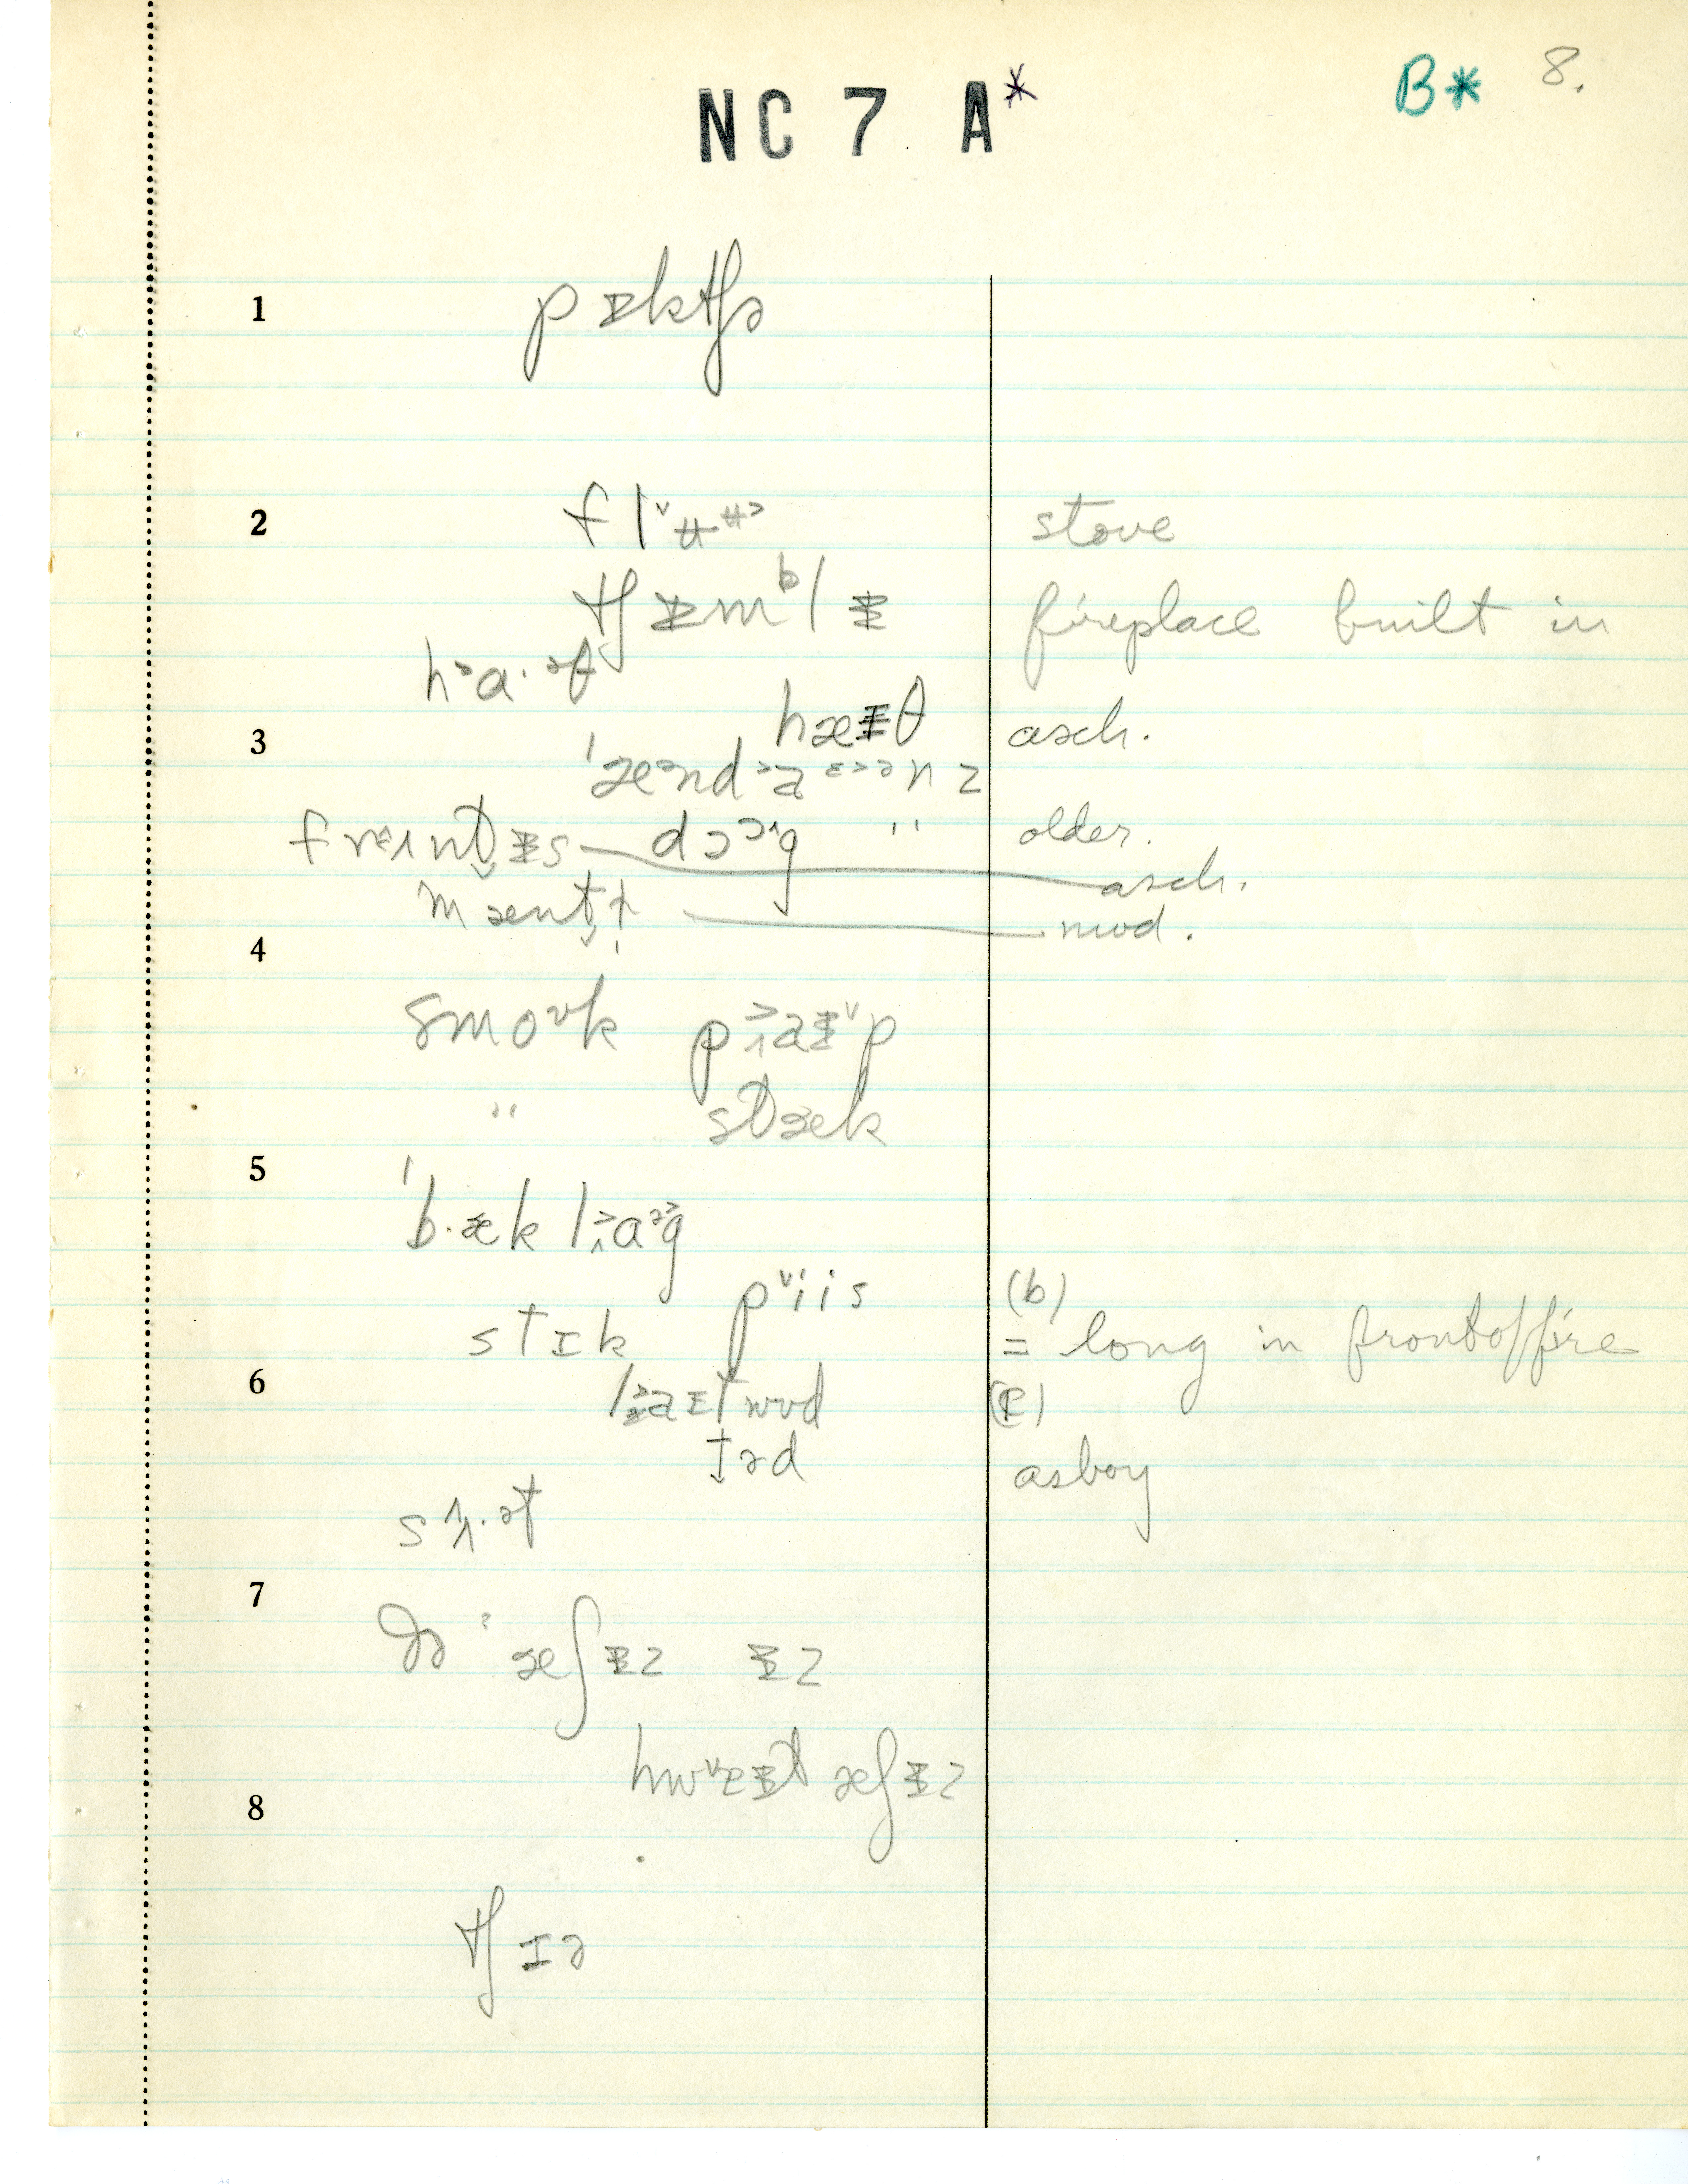 NC 7 A* B* 8.
1 pɪktʃə
2 flʉʉ stove
tʃɪmᵇlɪ fireplace built in
ha·əθ
3 hæɪθ asch.
ˈæəndaɛəənz
freɪntɪs dɔɔg " older.
asch.
mæntɫ mod.
4
smoʊk paɪp
" stæk
5
ˈb·æk lɑəg
piis (b)
stɪk = long in front of fire
6 laɪtwʊd (c)
təd as boy
sʌ·ət
7
ðə æʃɪz ɪz
hwɛɪt æʃɪz
8
tʃɪə